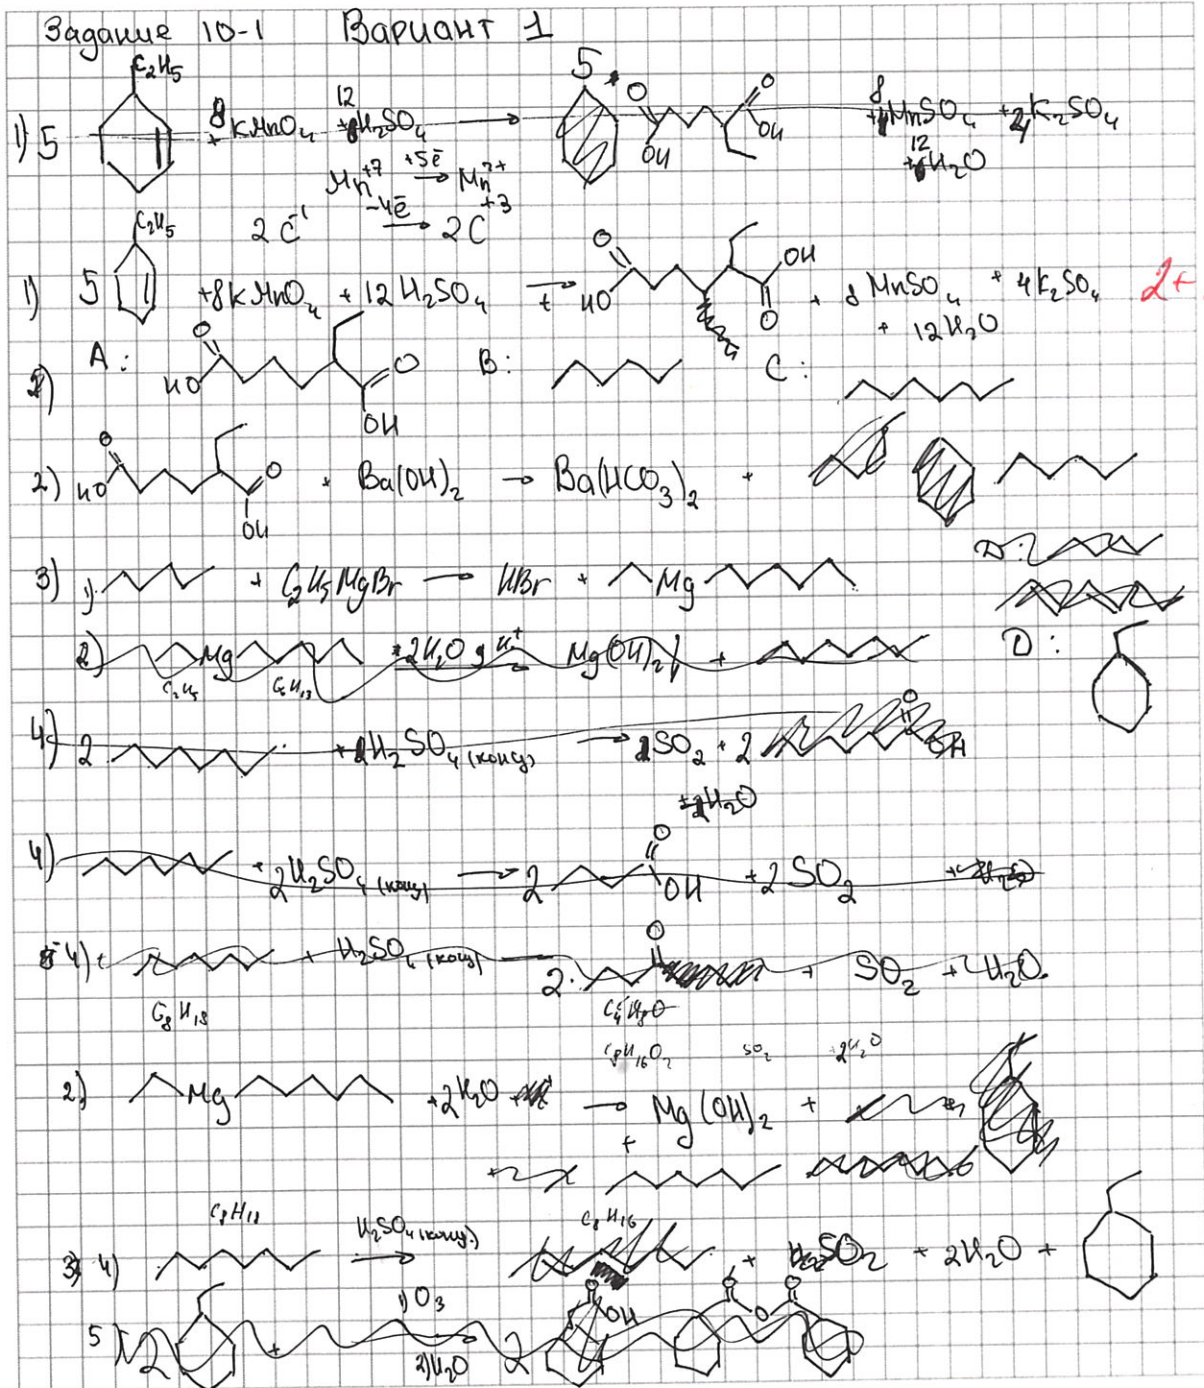 Задание 10-1 Вариант 1
C₂H₅
1) 5 + 8KMnO₄ + 12H₂SO₄ → 5 O OH O OH + 8MnSO₄ + 4K₂SO₄
+ 12H₂O
Mn⁺⁷ +5ē → Mn²⁺
2C⁻¹ -4ē → 2C⁺³
C₂H₅
1) 5 + 8KMnO₄ + 12H₂SO₄ →t O HO OH O + 8MnSO₄ + 4K₂SO₄ 2+
+ 12H₂O
2) A: O HO O OH B: C:
2) O HO O OH + Ba(OH)₂ → Ba(HCO₃)₂ +
D:
3) 1) + C₂H₅MgBr → HBr + Mg
2) Mg + 2H₂O, H⁺ → Mg(OH)₂ + D:
C₂H₅ C₆H₁₃
4) 2 + H₂SO₄ (конц) → SO₂ + 2 O OH
+ 2H₂O
4) + 2H₂SO₄ (конц) → 2 O OH + 2SO₂ + H₂O
4) + H₂SO₄ (конц) 2 O + SO₂ + H₂O
C₈H₁₈ C₄H₈O
C₈H₁₆O₂ SO₂ +2H₂O
2) Mg + 2H₂O → Mg(OH)₂ +
+
C₈H₁₈ H₂SO₄ (конц.) C₈H₁₆
3) 4) → + SO₂ + 2H₂O +
5) 2 + 1) O₃ 2) H₂O 2 O OH O O O